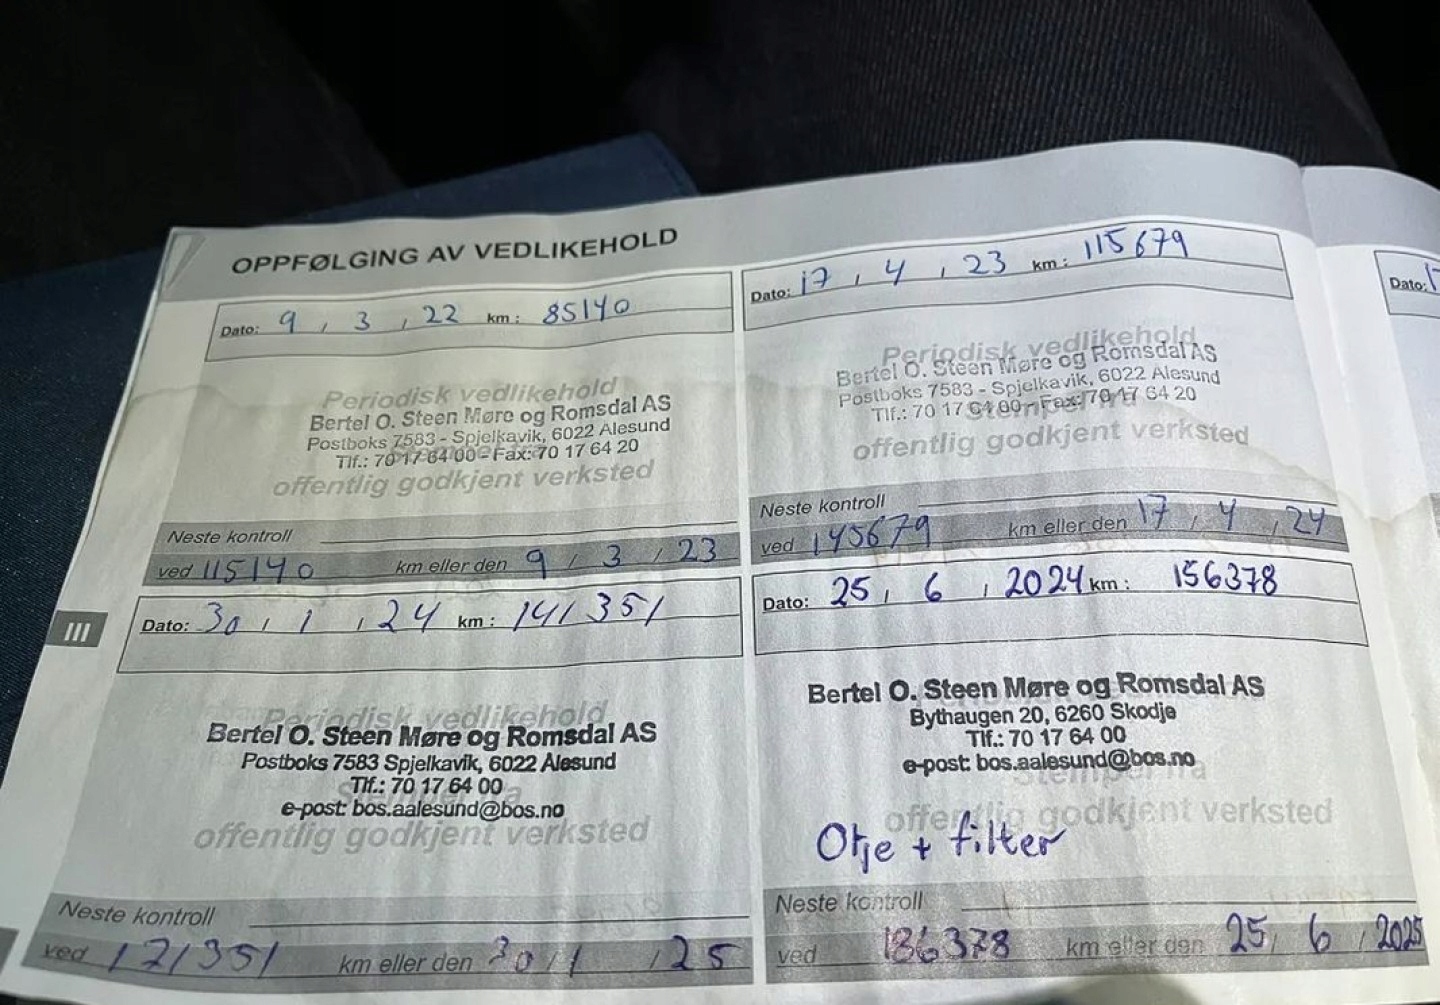 OPPFØLGING AV VEDLIKEHOLD
Dato: 9 , 3 , 22 km : 85140
Periodisk vedlikehold
Bertel O. Steen Møre og Romsdal AS
Postboks 7583 - Spjelkavik, 6022 Alesund
Tlf.: 70 17 64 00 - Fax: 70 17 64 20
offentlig godkjent verksted
Neste kontroll
ved 115140 km eller den 9 / 3 / 23
Dato: 17 , 4 , 23 km : 115679
Periodisk vedlikehold
Bertel O. Steen Møre og Romsdal AS
Postboks 7583 - Spjelkavik, 6022 Alesund
Tlf.: 70 17 64 00 - Fax: 70 17 64 20
Stempel fra
offentlig godkjent verksted
Neste kontroll
ved 145679 km eller den 17 , 4 , 24
III
Dato: 30 , 1 , 24 km : 141351
Periodisk vedlikehold
Bertel O. Steen Møre og Romsdal AS
Postboks 7583 Spjelkavik, 6022 Alesund
Tlf.: 70 17 64 00
e-post: bos.aalesund@bos.no
offentlig godkjent verksted
Neste kontroll
ved 171351 km eller den 30 , 1 , 25
Dato: 25 , 6 , 2024 km : 156378
Bertel O. Steen Møre og Romsdal AS
Bythaugen 20, 6260 Skodje
Tlf.: 70 17 64 00
e-post: bos.aalesund@bos.no
Stempel fra
offentlig godkjent verksted
Olje + filter
Neste kontroll
ved 186378 km eller den 25 , 6 , 2025
Dato: